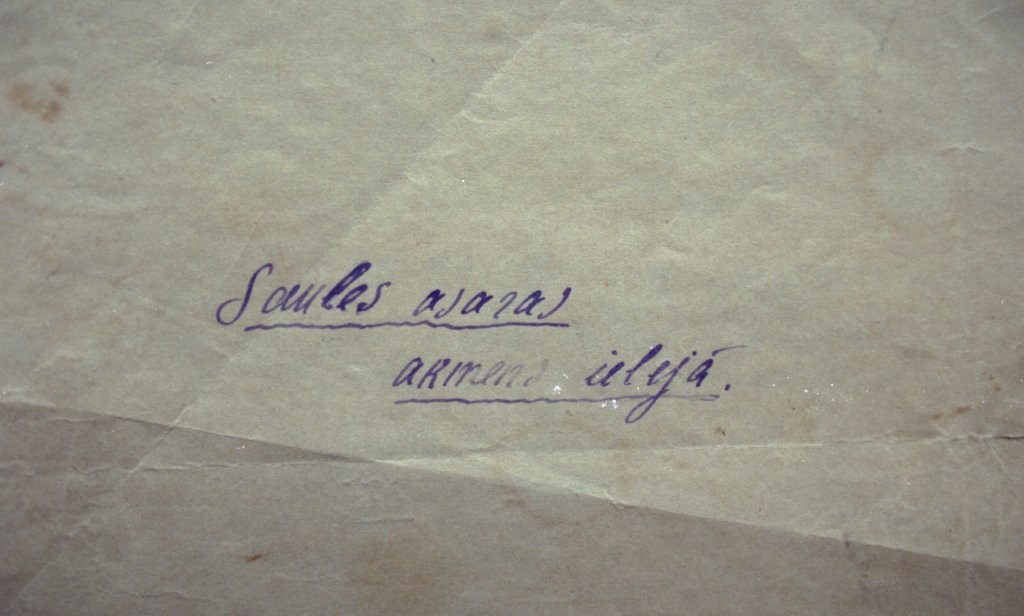 Saules asaras
akmens ielejā.